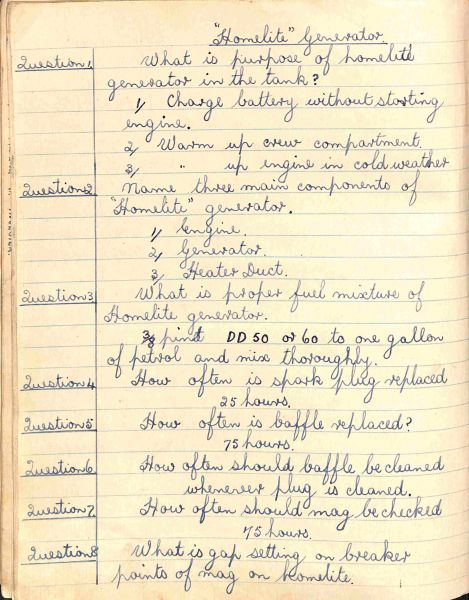 "Homelite" Generator.
Question 1. What is purpose of homelite
generator in the tank?
1/ Charge battery without starting
engine.
2/ Warm up crew compartment.
3/ " up engine in cold weather
Question 2 Name three main components of
"Homelite" generator.
1/ Engine.
2/ Generator.
3/ Heater Duct.
Question 3 What is proper fuel mixture of
Homelite generator.
3/8 pint DD 50 or 60 to one gallon
of petrol and mix thoroughly.
Question 4 How often is spark plug replaced
25 hours.
Question 5 How often is baffle replaced?
75 hours.
Question 6 How often should baffle be cleaned
whenever plug is cleaned.
Question 7. How often should mag be checked
75 hours.
Question 8 What is gap setting on breaker
points of mag on homelite.